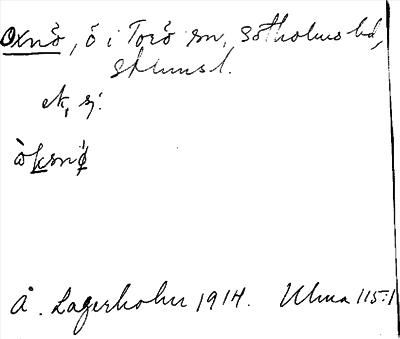 Oxnö, ö i Torö sn, Sotholms hd,
Sthlmsl.
ek, sj.
òksnö̀
Å. Lagerholm 1914. Ulma 115:1